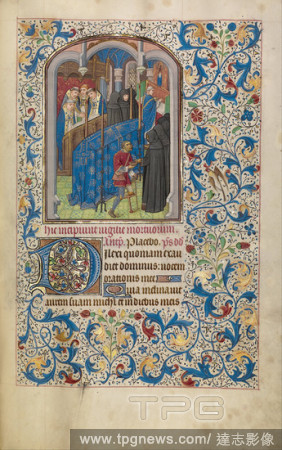 hic incipiunt vigilie mortuorum
Antip. Placebo. ps Di
lexi quoniam exau
diet dominus: vocem
orationis mee
Quia inclinavit
aurem suam michi et in diebus meis
TPG
www.tpgnews.com / 達志影像